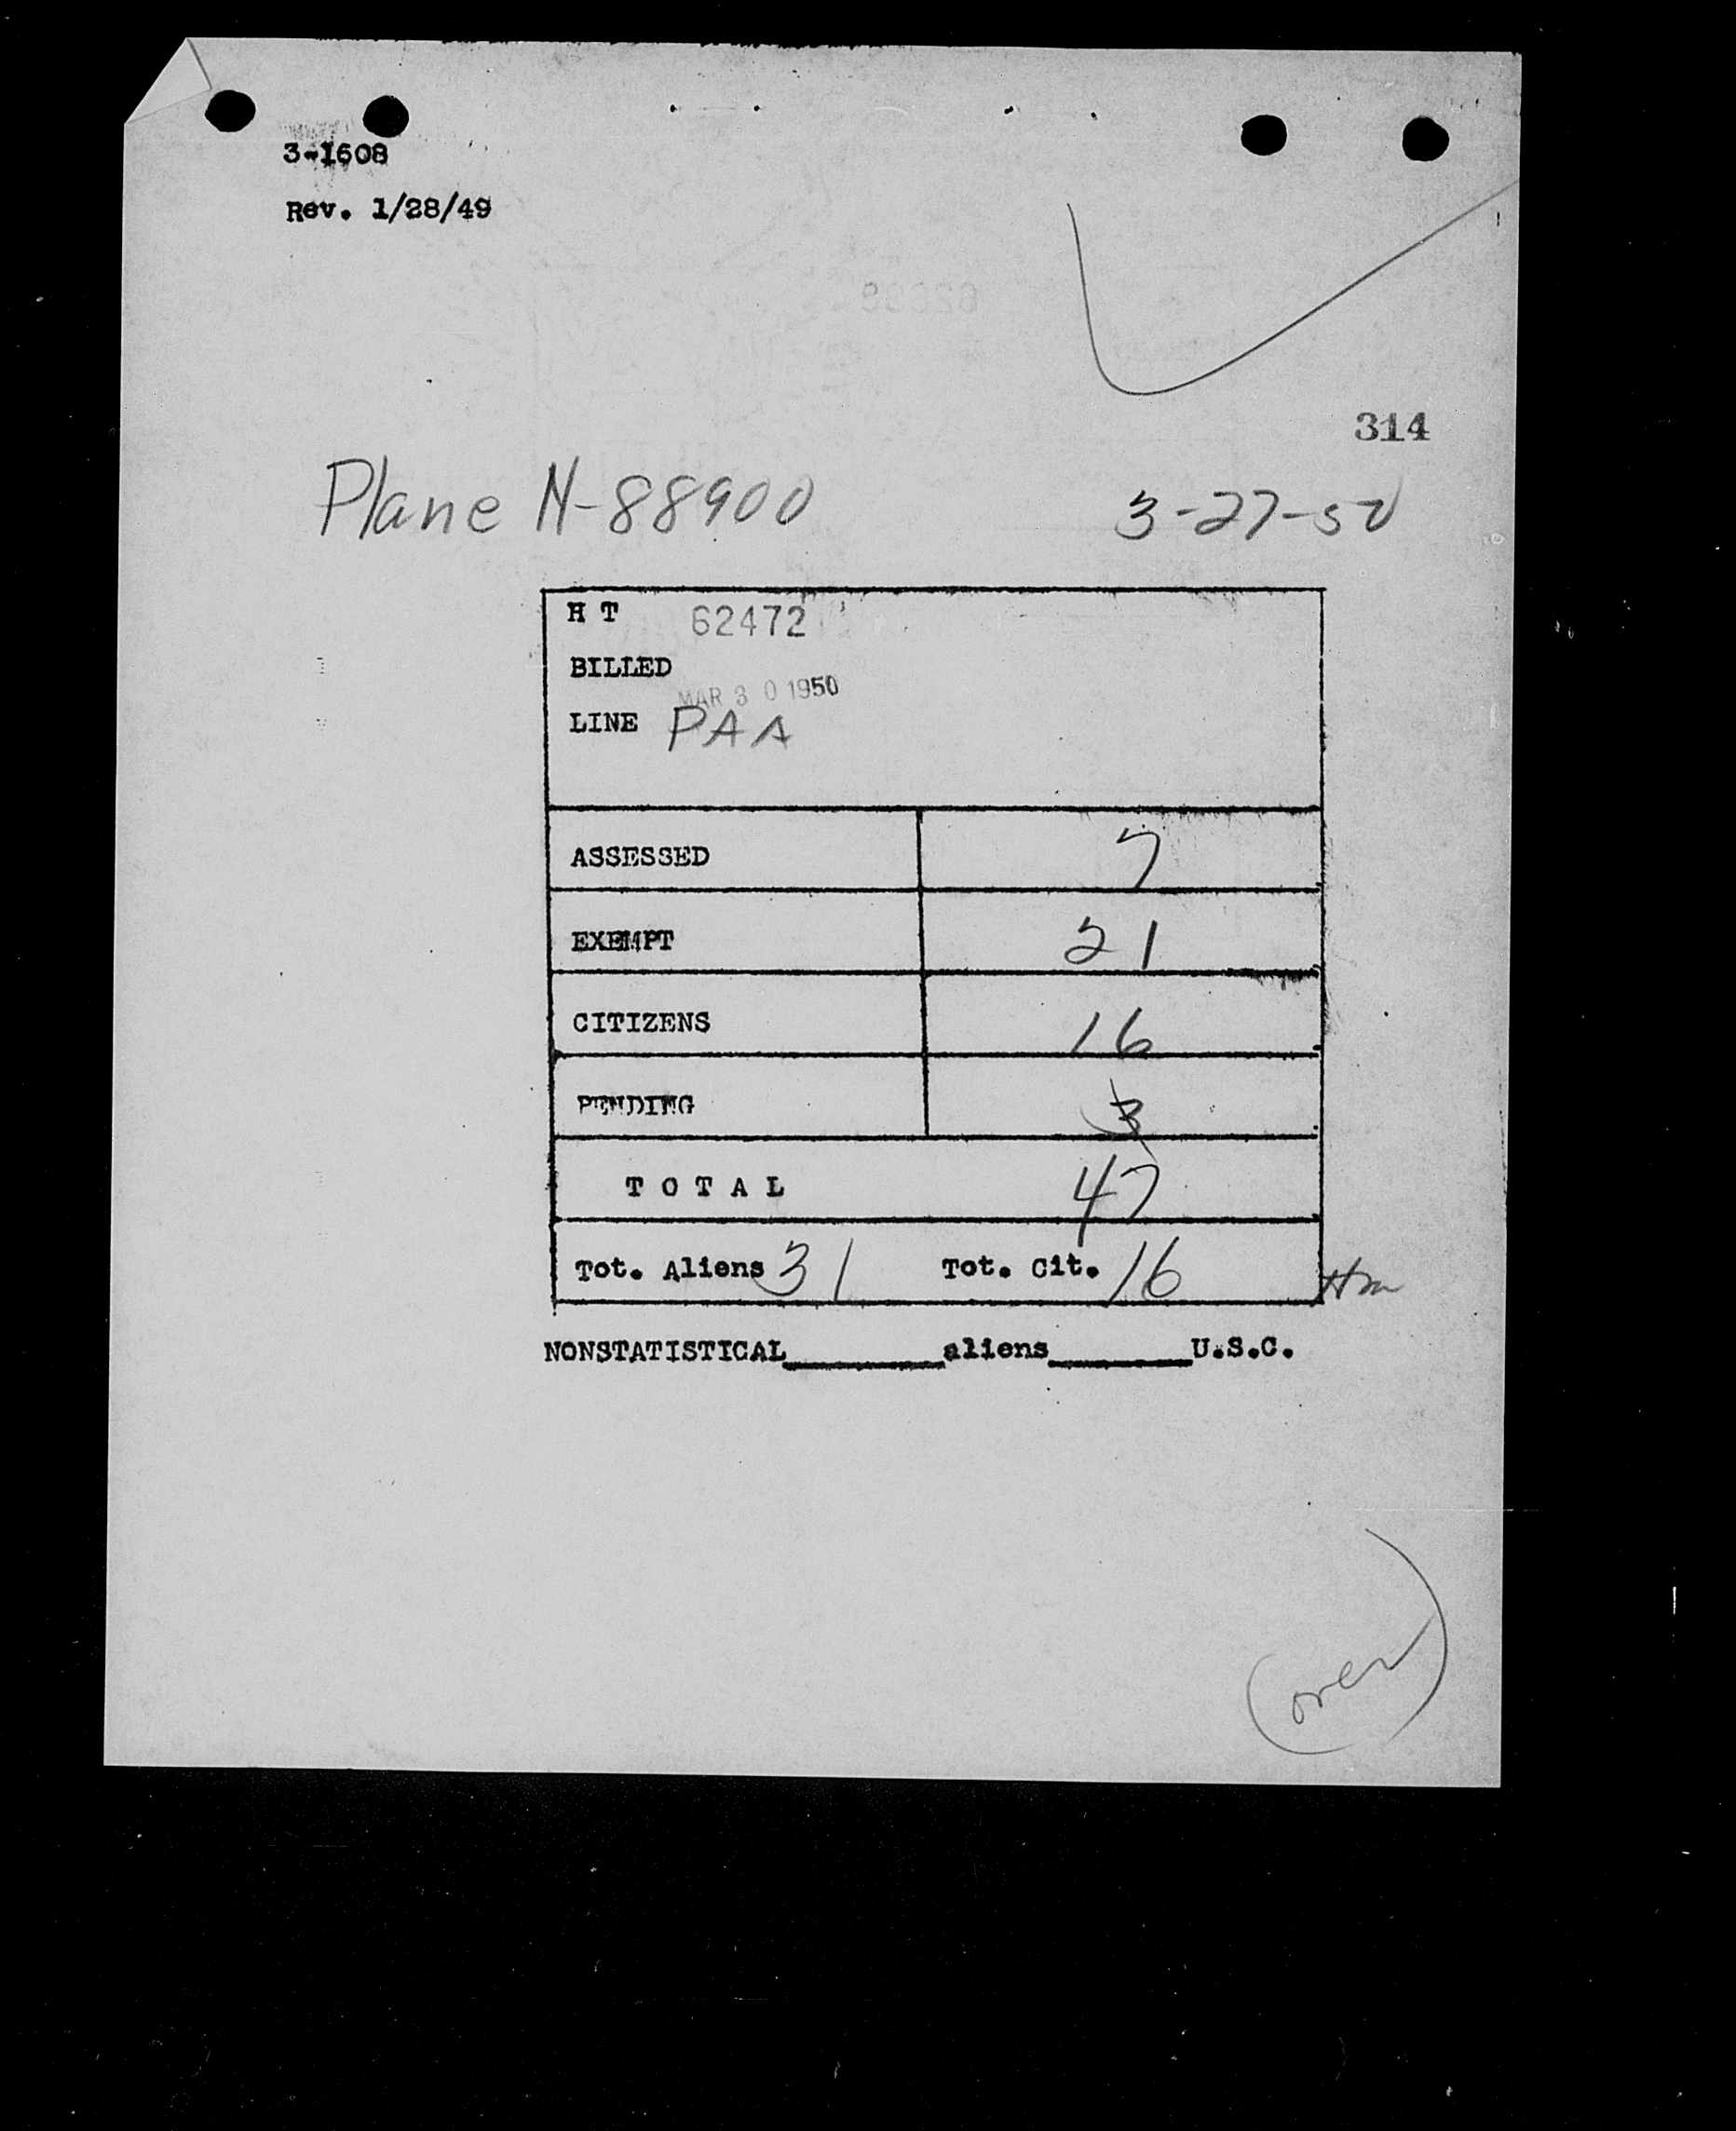 3-1608
Rev. 1/28/49
314
Plane N-88900 3-27-50
H T 62472
BILLED
MAR 30 1950
LINE PAA
ASSESSED 7
EXEMPT 21
CITIZENS 16
PENDING 3
T O T A L 47
Tot. Aliens 31 Tot. Cit. 16
NONSTATISTICAL________aliens________U.S.C.
(over)